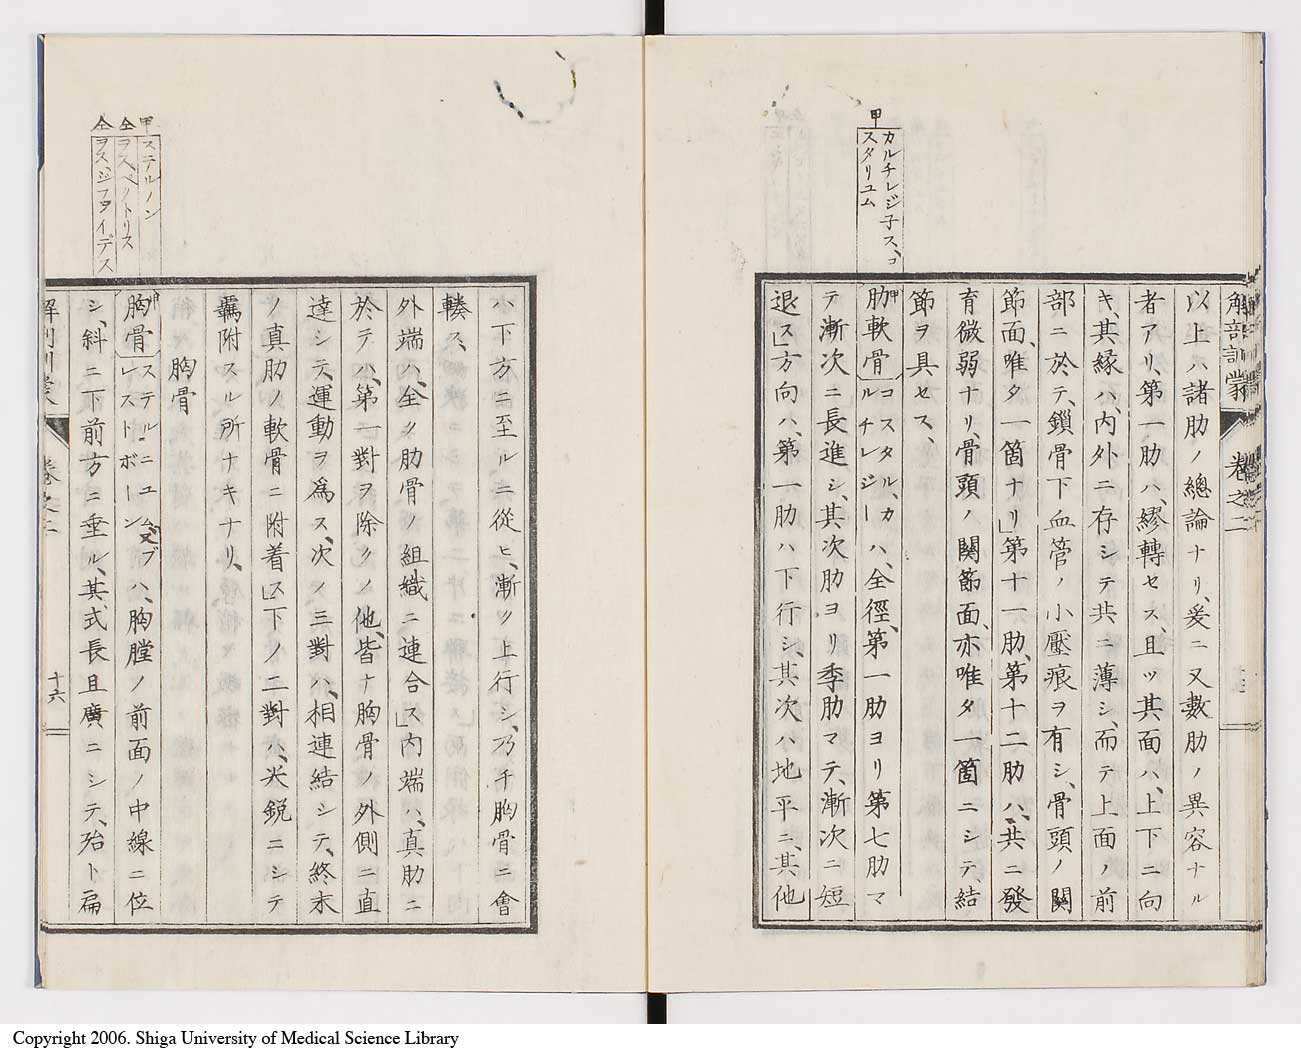 甲 カルチレジ子ス、コ
スタリユム
解剖訓蒙 卷之二
以上ハ諸肋ノ總論ナリ、爰ニ又數肋ノ異容ナル
者アリ、第一肋ハ、繆轉セス且ツ其面ハ、上下ニ向
キ、其縁ハ、内外ニ存シテ共ニ薄シ、而テ上面ノ前
部ニ於テ、鎖骨下血管ノ小壓痕ヲ有シ、骨頭ノ関
節面、唯タ一箇ナリ」第十一肋、第十二肋ハ、共ニ發
育微弱ナリ、骨頭ノ関節面、亦唯タ一箇ニシテ結
節ヲ具セス、
肋軟骨 甲 コスタル、カルチレジー ハ、全徑、第一肋ヨリ第七肋マ
テ漸次ニ長進シ、其次肋ヨリ季肋マテ、漸次ニ短
退ス」方向ハ、第一肋ハ下行シ、其次ハ地平ニ、其他
甲 ステルノン
仝 ヲス、ペクトリス
仝 ヲス、ジフヲイデス
ハ下方ニ至ルニ從ヒ、漸ク上行シ、乃チ胸骨ニ會
輳ス、
外端ハ、全ク肋骨ノ組織ニ連合ス」内端ハ、真肋ニ
於テハ、第一對ヲ除クノ他、皆ナ胸骨ノ外側ニ直
達シテ、運動ヲ為ス、次ノ三對ハ、相連結シテ、終末
ノ真肋ノ軟骨ニ附着ス」下ノ二對ハ、尖鋭ニシテ
羈附スル所ナキナリ、
胸骨
胸骨 甲 ステルニユム又ブレストボーン ハ、胸膛ノ前面ノ中線ニ位
シ、斜ニ下前方ニ垂ル、其式長且廣ニシテ、殆ト扁
解剖訓蒙 卷之二 十六